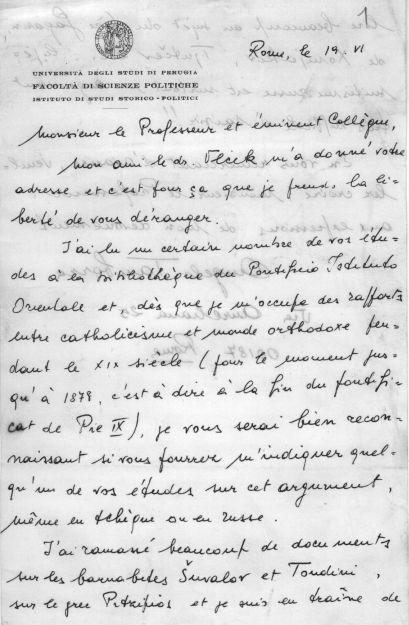 1
Rome, le 19. VI
UNIVERSITÀ DEGLI STUDI DI PERUGIA
FACOLTÀ DI SCIENZE POLITICHE
ISTITUTO DI STUDI STORICO - POLITICI
Monsieur le Professeur et éminent Collègue,
mon ami le dr. Vlček m'a donné votre
adresse et c'est pour ça que je prend la li-
berté de vous déranger.
J'ai lu un certain nombre de vos étu-
des à la Bibliothèque du Pontificio Istituto
Orientale et, dès que je m'occupe des rapports
entre catholicisme et monde orthodoxe pen-
dant le XIX siècle (pour le moment jus-
qu'à 1878, c'est à dire à la fin du pontifi-
cat de Pie IX), je vous serai bien recon-
naissant si vous pourrez m'indiquer quel-
qu'un de vos études sur cet argument,
même en tchèque ou en russe.
J'ai ramassé beaucoup de documents
sur les barnabites Šuvalov et Tondini,
sur le grec Pitzipios et je suis en traîne de